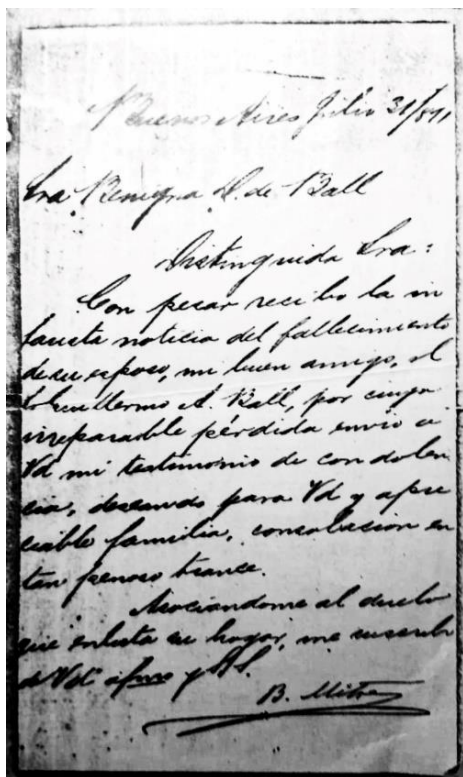 Buenos Aires Julio 31/891
Sra. Benigna D. de Ball
Distinguida Sra:
Con pesar recibo la in
fausta noticia del fallecimiento
de su esposo, mi buen amigo, el
Guillermo A. Ball, por cuya
irreparable pérdida envio a
Vd mi testimonio de condolen
cia, deseando para Vd y apre
ciable familia, consolacion en
tan penoso trance.
Asociandome al duelo
que enluta su hogar, me suscribo
de Vd afmo y SS.
B. Mitre